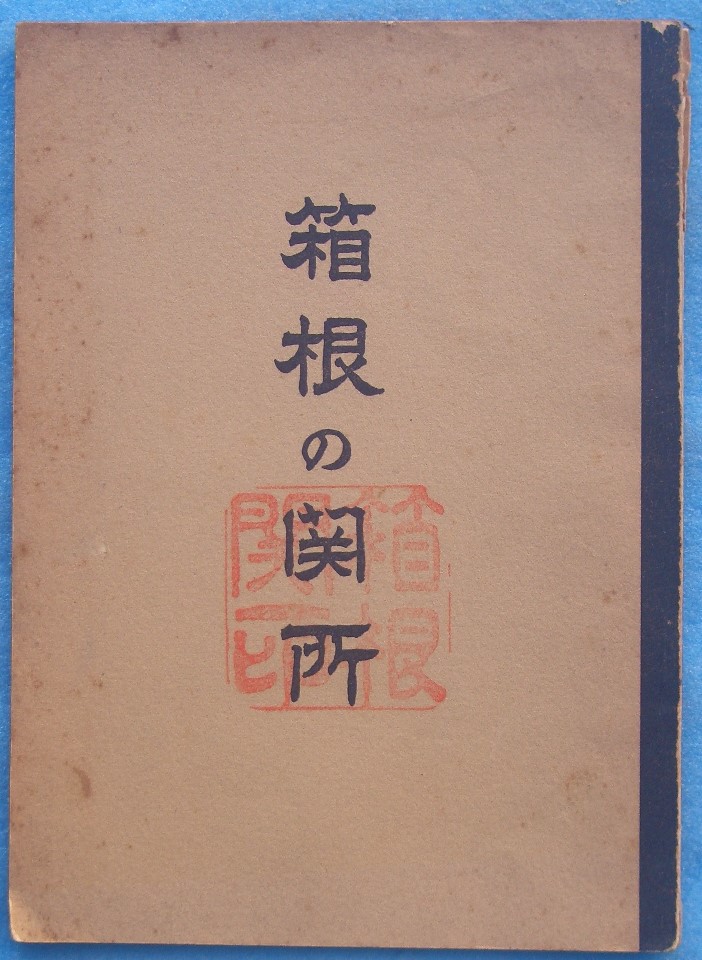 箱根の関所
箱根
関所